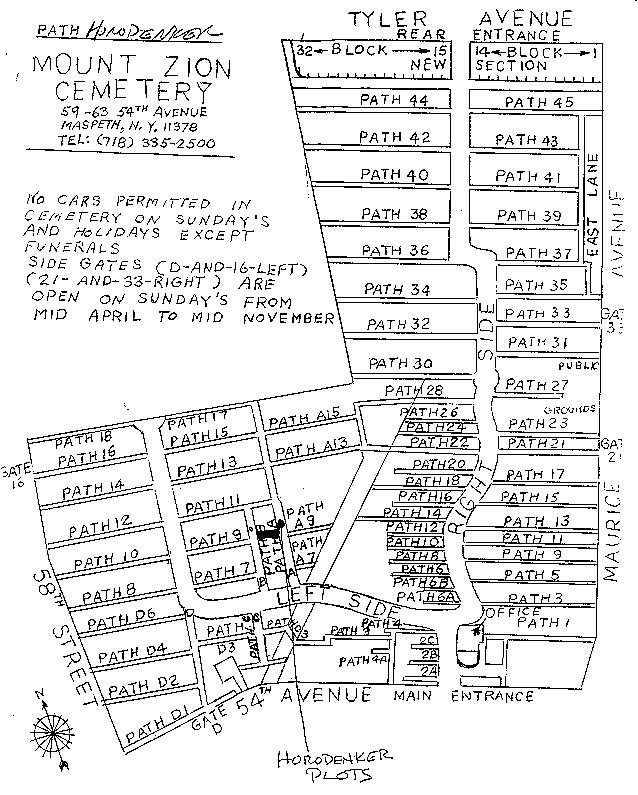 PATH HORODENKER
MOUNT ZION
CEMETERY
59-63 54TH AVENUE
MASPETH, N.Y. 11378
TEL: (718) 335-2500
NO CARS PERMITTED IN
CEMETERY ON SUNDAY'S
AND HOLIDAYS EXCEPT
FUNERALS
SIDE GATES (D-AND-16-LEFT)
(21-AND-33-RIGHT) ARE
OPEN ON SUNDAY'S FROM
MID APRIL TO MID NOVEMBER
TYLER AVENUE
REAR ENTRANCE
32 ← BLOCK → 15
NEW
14 ← BLOCK → 1
SECTION
PATH 44
PATH 45
PATH 42
PATH 43
PATH 40
PATH 41
PATH 38
PATH 39
PATH 36
PATH 37
EAST LANE
PATH 34
PATH 35
PATH 32
PATH 33
GATE 33
PATH 31
PATH 30
PUBLIC
PATH 28
PATH 27
GROUNDS
PATH 26
PATH 24
PATH 23
PATH 22
PATH 21
GATE 21
PATH 20
PATH 18
PATH 17
PATH 16
PATH 15
PATH 14
PATH 13
PATH 12
PATH 11
PATH 10
PATH 9
PATH 8
PATH 6
PATH 5
PATH 6B
PATH 6A
PATH 3
OFFICE
PATH 1
SIDE
RIGHT
MAURICE AVENUE
PATH 18
PATH 17
PATH A15
PATH 16
PATH 15
PATH A13
GATE 16
PATH 14
PATH 13
PATH 12
PATH 11
PATH A9
PATH 10
PATH 9
PATH A7
PATH 8
PATH 7
PATH B
PATH A
B
A
LEFT SIDE
PATH D6
PATH D4
D3
PATH D2
PATH D1
D
PATH 4
PATH 4A
2C
2B
2A
58TH STREET
GATE D
54TH AVENUE
MAIN ENTRANCE
N
HORODENKER
PLOTS